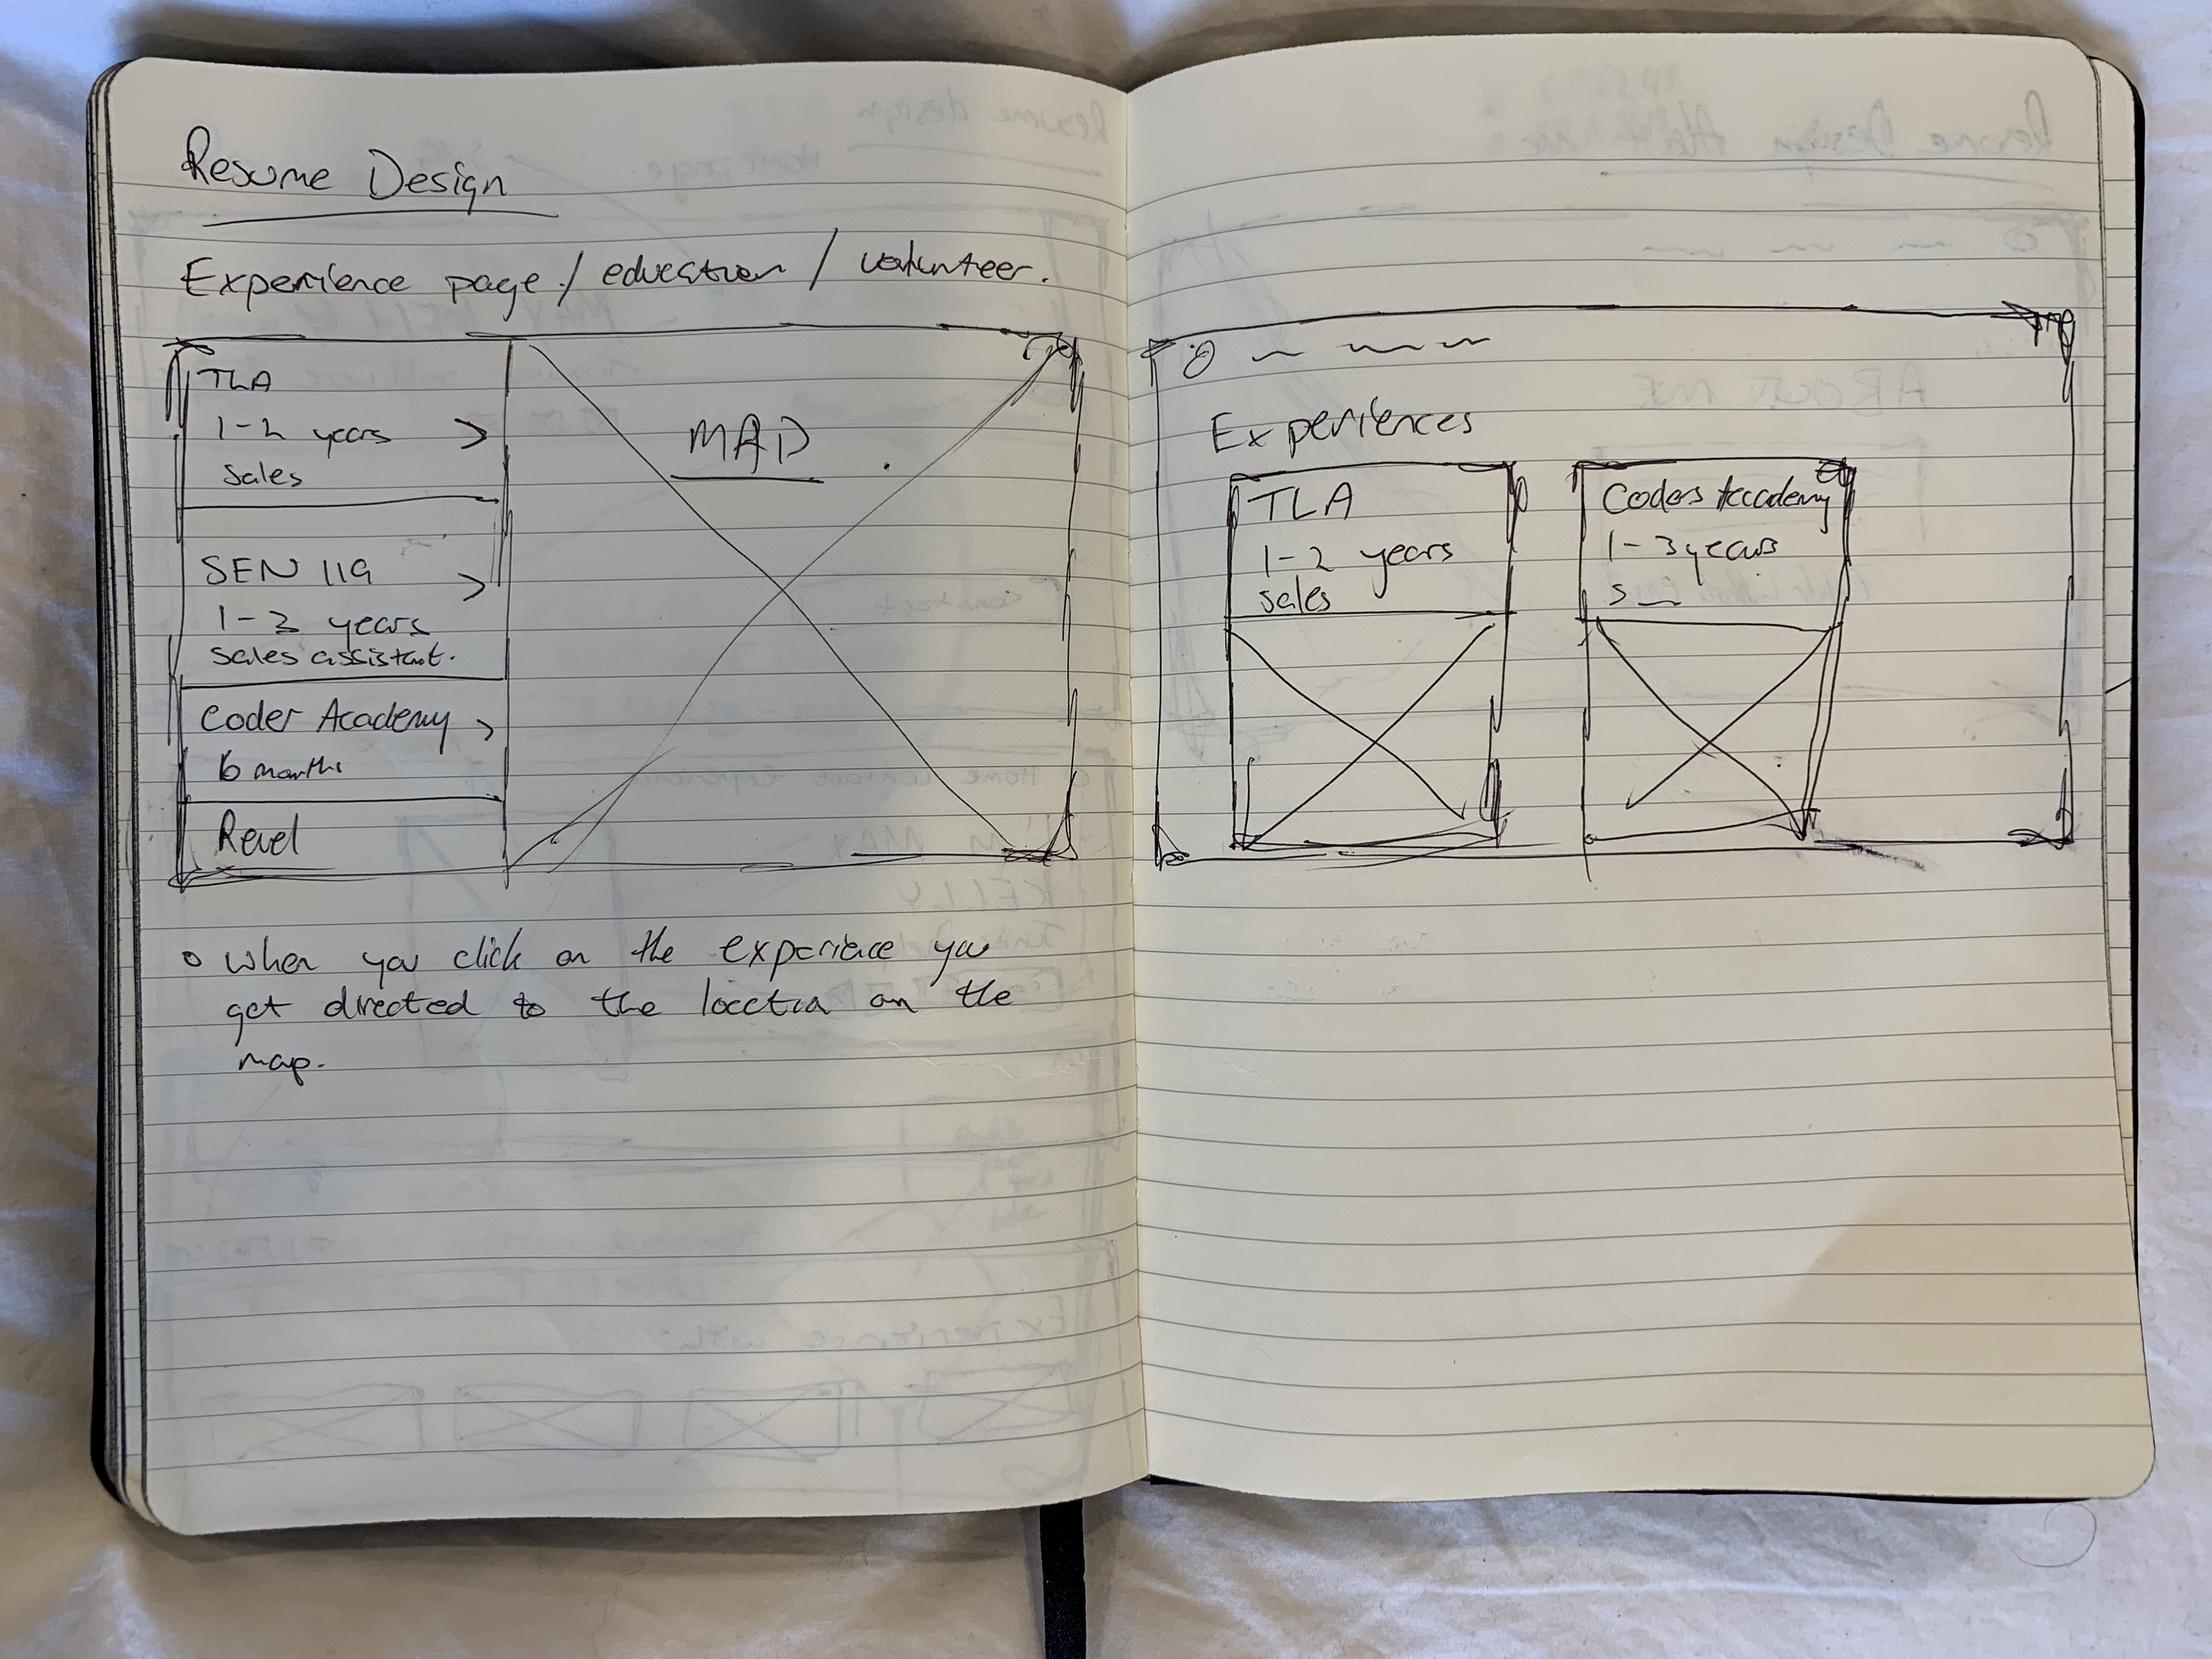 Resume Design
Experience page / education / volunteer.
TLA
1-2 years >
sales
SEN 119
>
1-3 years
sales assistant.
Coder Academy >
6 months
Revel
MAP
o when you click on the experience you
get directed to the location on the
map.
Experiences
TLA
1-2 years
sales
Coders Academy
1-3 years
s